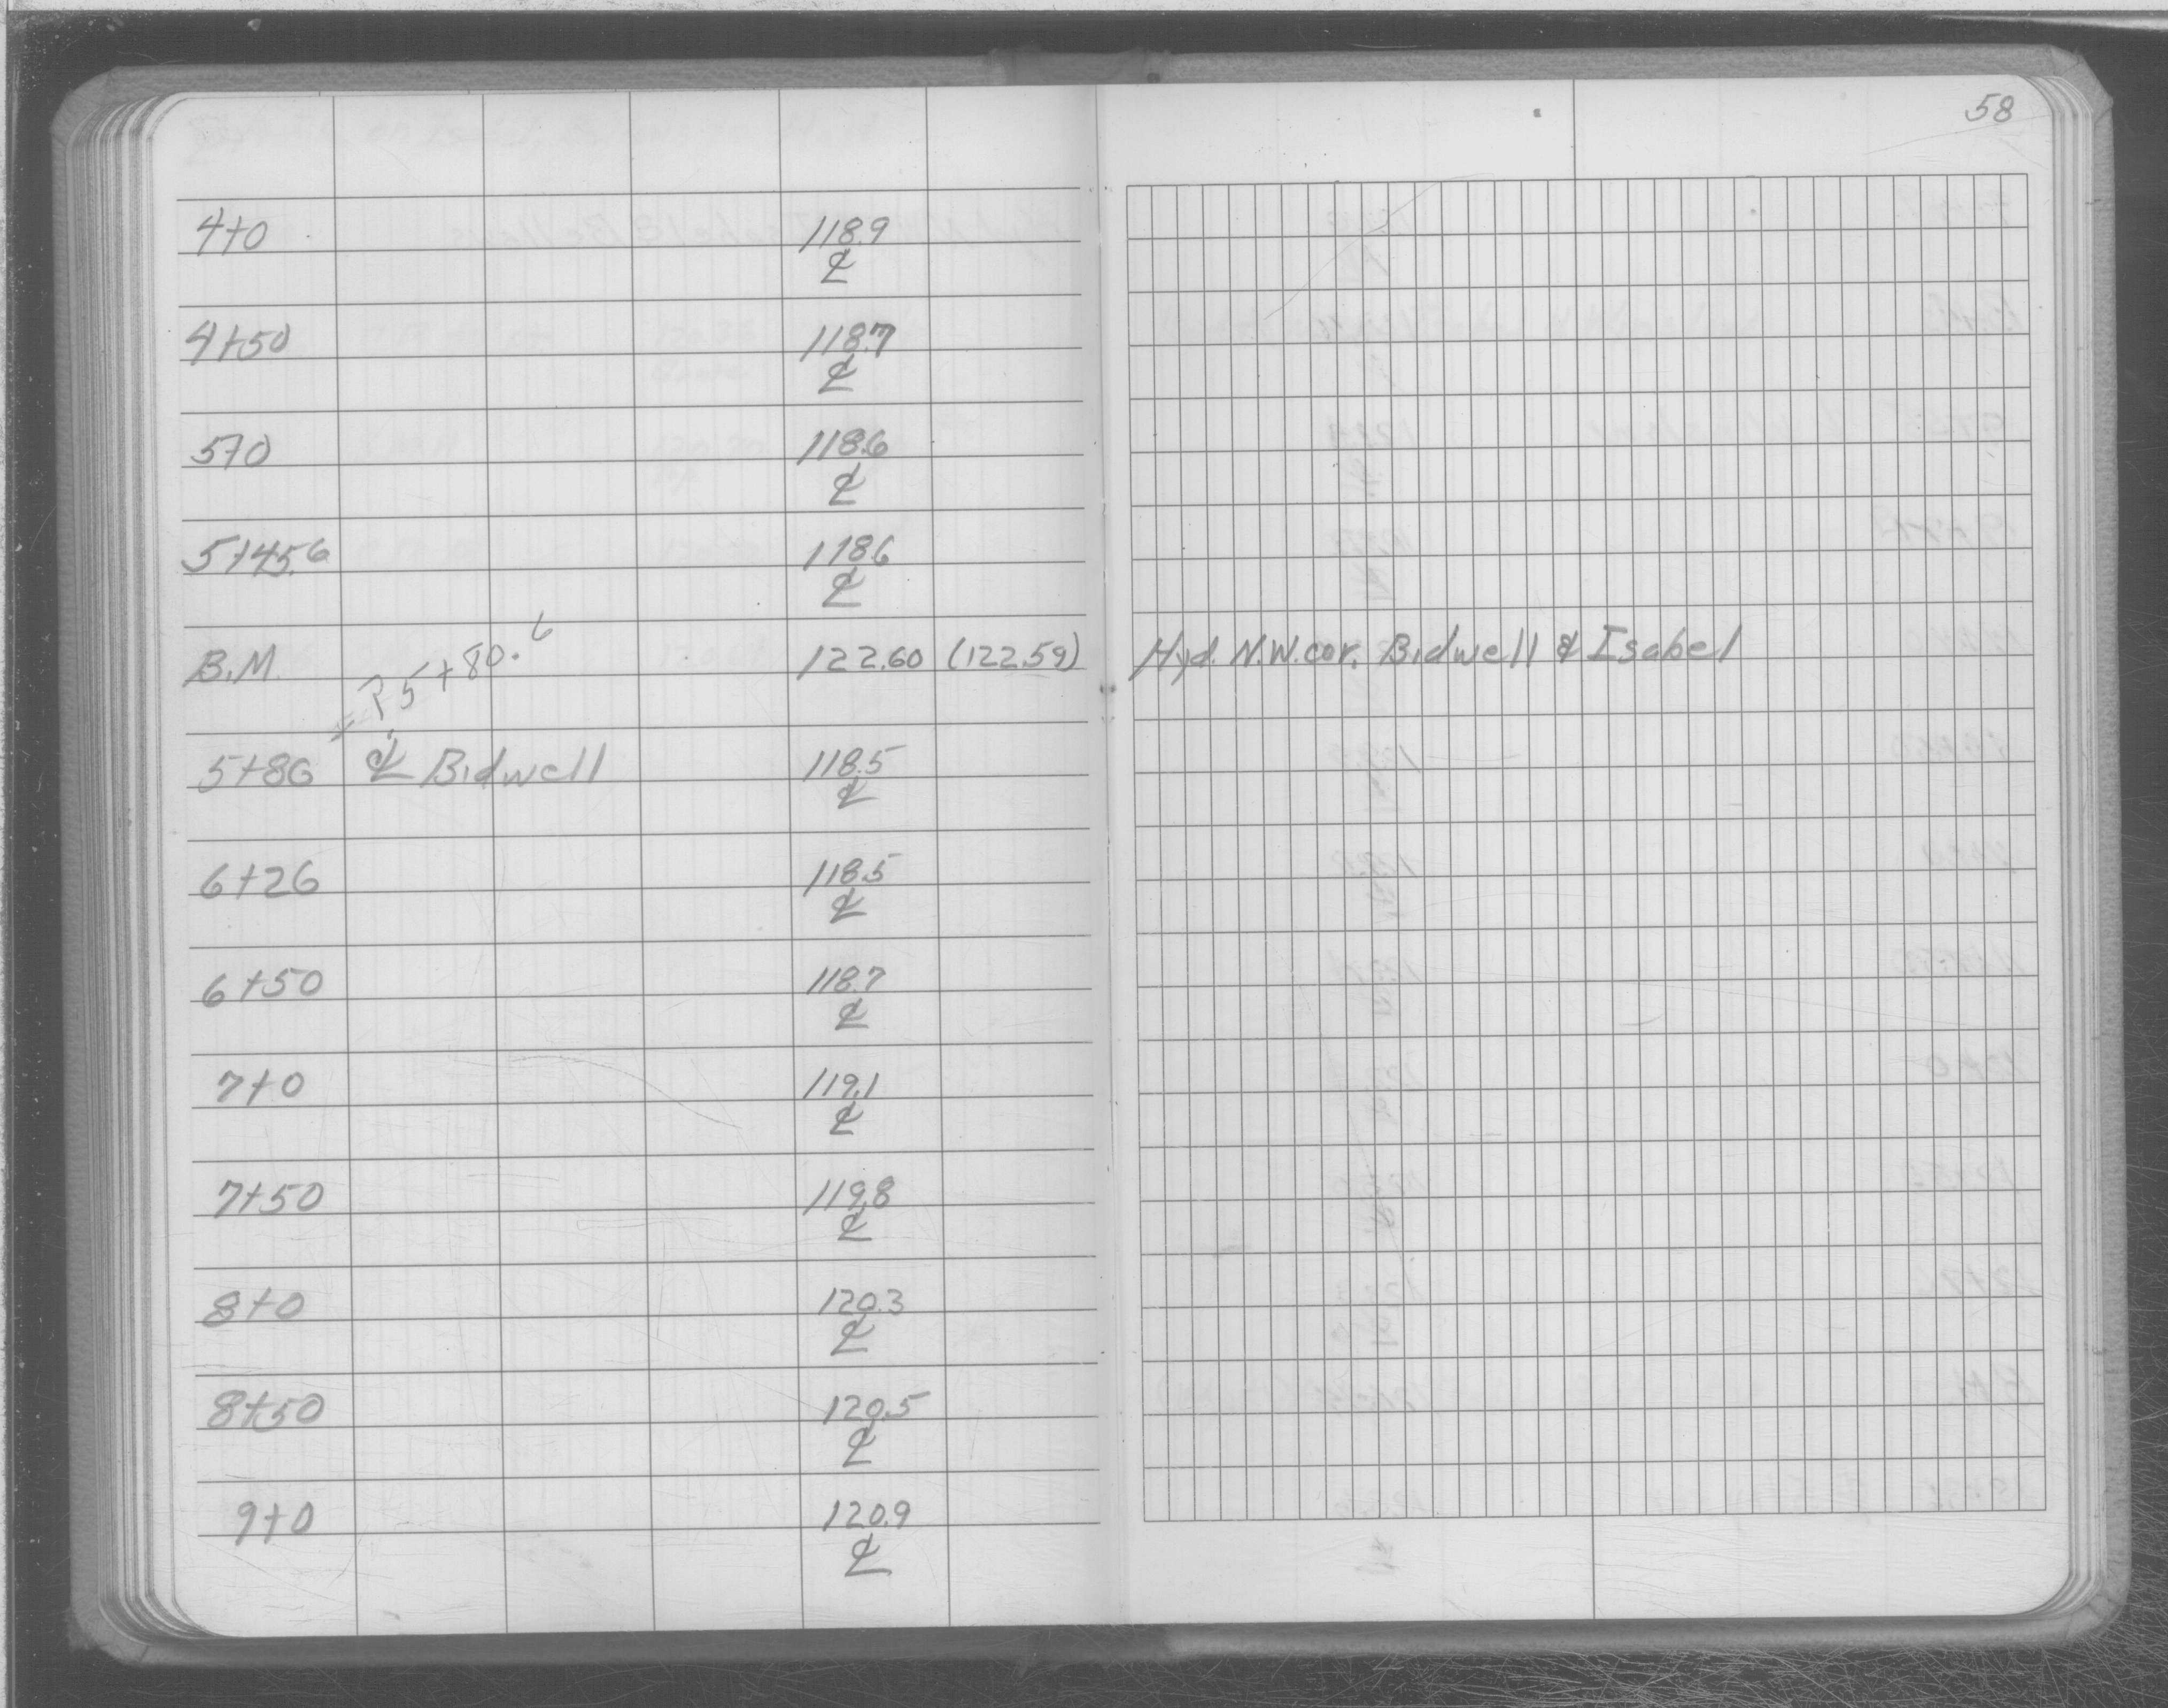 58
4+0 118.9
℄
4+50 118.7
℄
5+0 118.6
℄
5+45.6 118.6
℄
= ? 5+80.6
B.M. 122.60 (122.59) Hyd. N.W. cor. Bidwell & Isabel
5+86 ℄ Bidwell 118.5
℄
6+26 118.5
℄
6+50 118.7
℄
7+0 119.1
℄
7+50 119.8
℄
8+0 120.3
℄
8+50 120.5
℄
9+0 120.9
℄